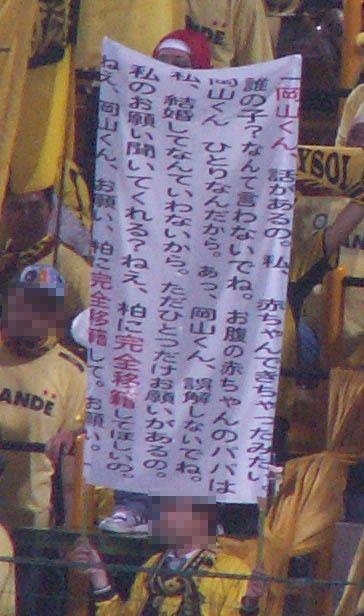 「岡山くん、話があるの。私、赤ちゃんできちゃったみたい。
誰の子?なんて言わないでね。お腹の赤ちゃんのパパは
岡山くん ひとりなんだから。あっ、岡山くん、誤解しないでね。
私、結婚してなんていわないから。ただひとつだけお願いがあるの。
私のお願い聞いてくれる?ねえ、柏に完全移籍してほしいの。
ねえ、岡山くん、お願い、柏に完全移籍して。お願い。」
YSOL
ANDE
LANDE